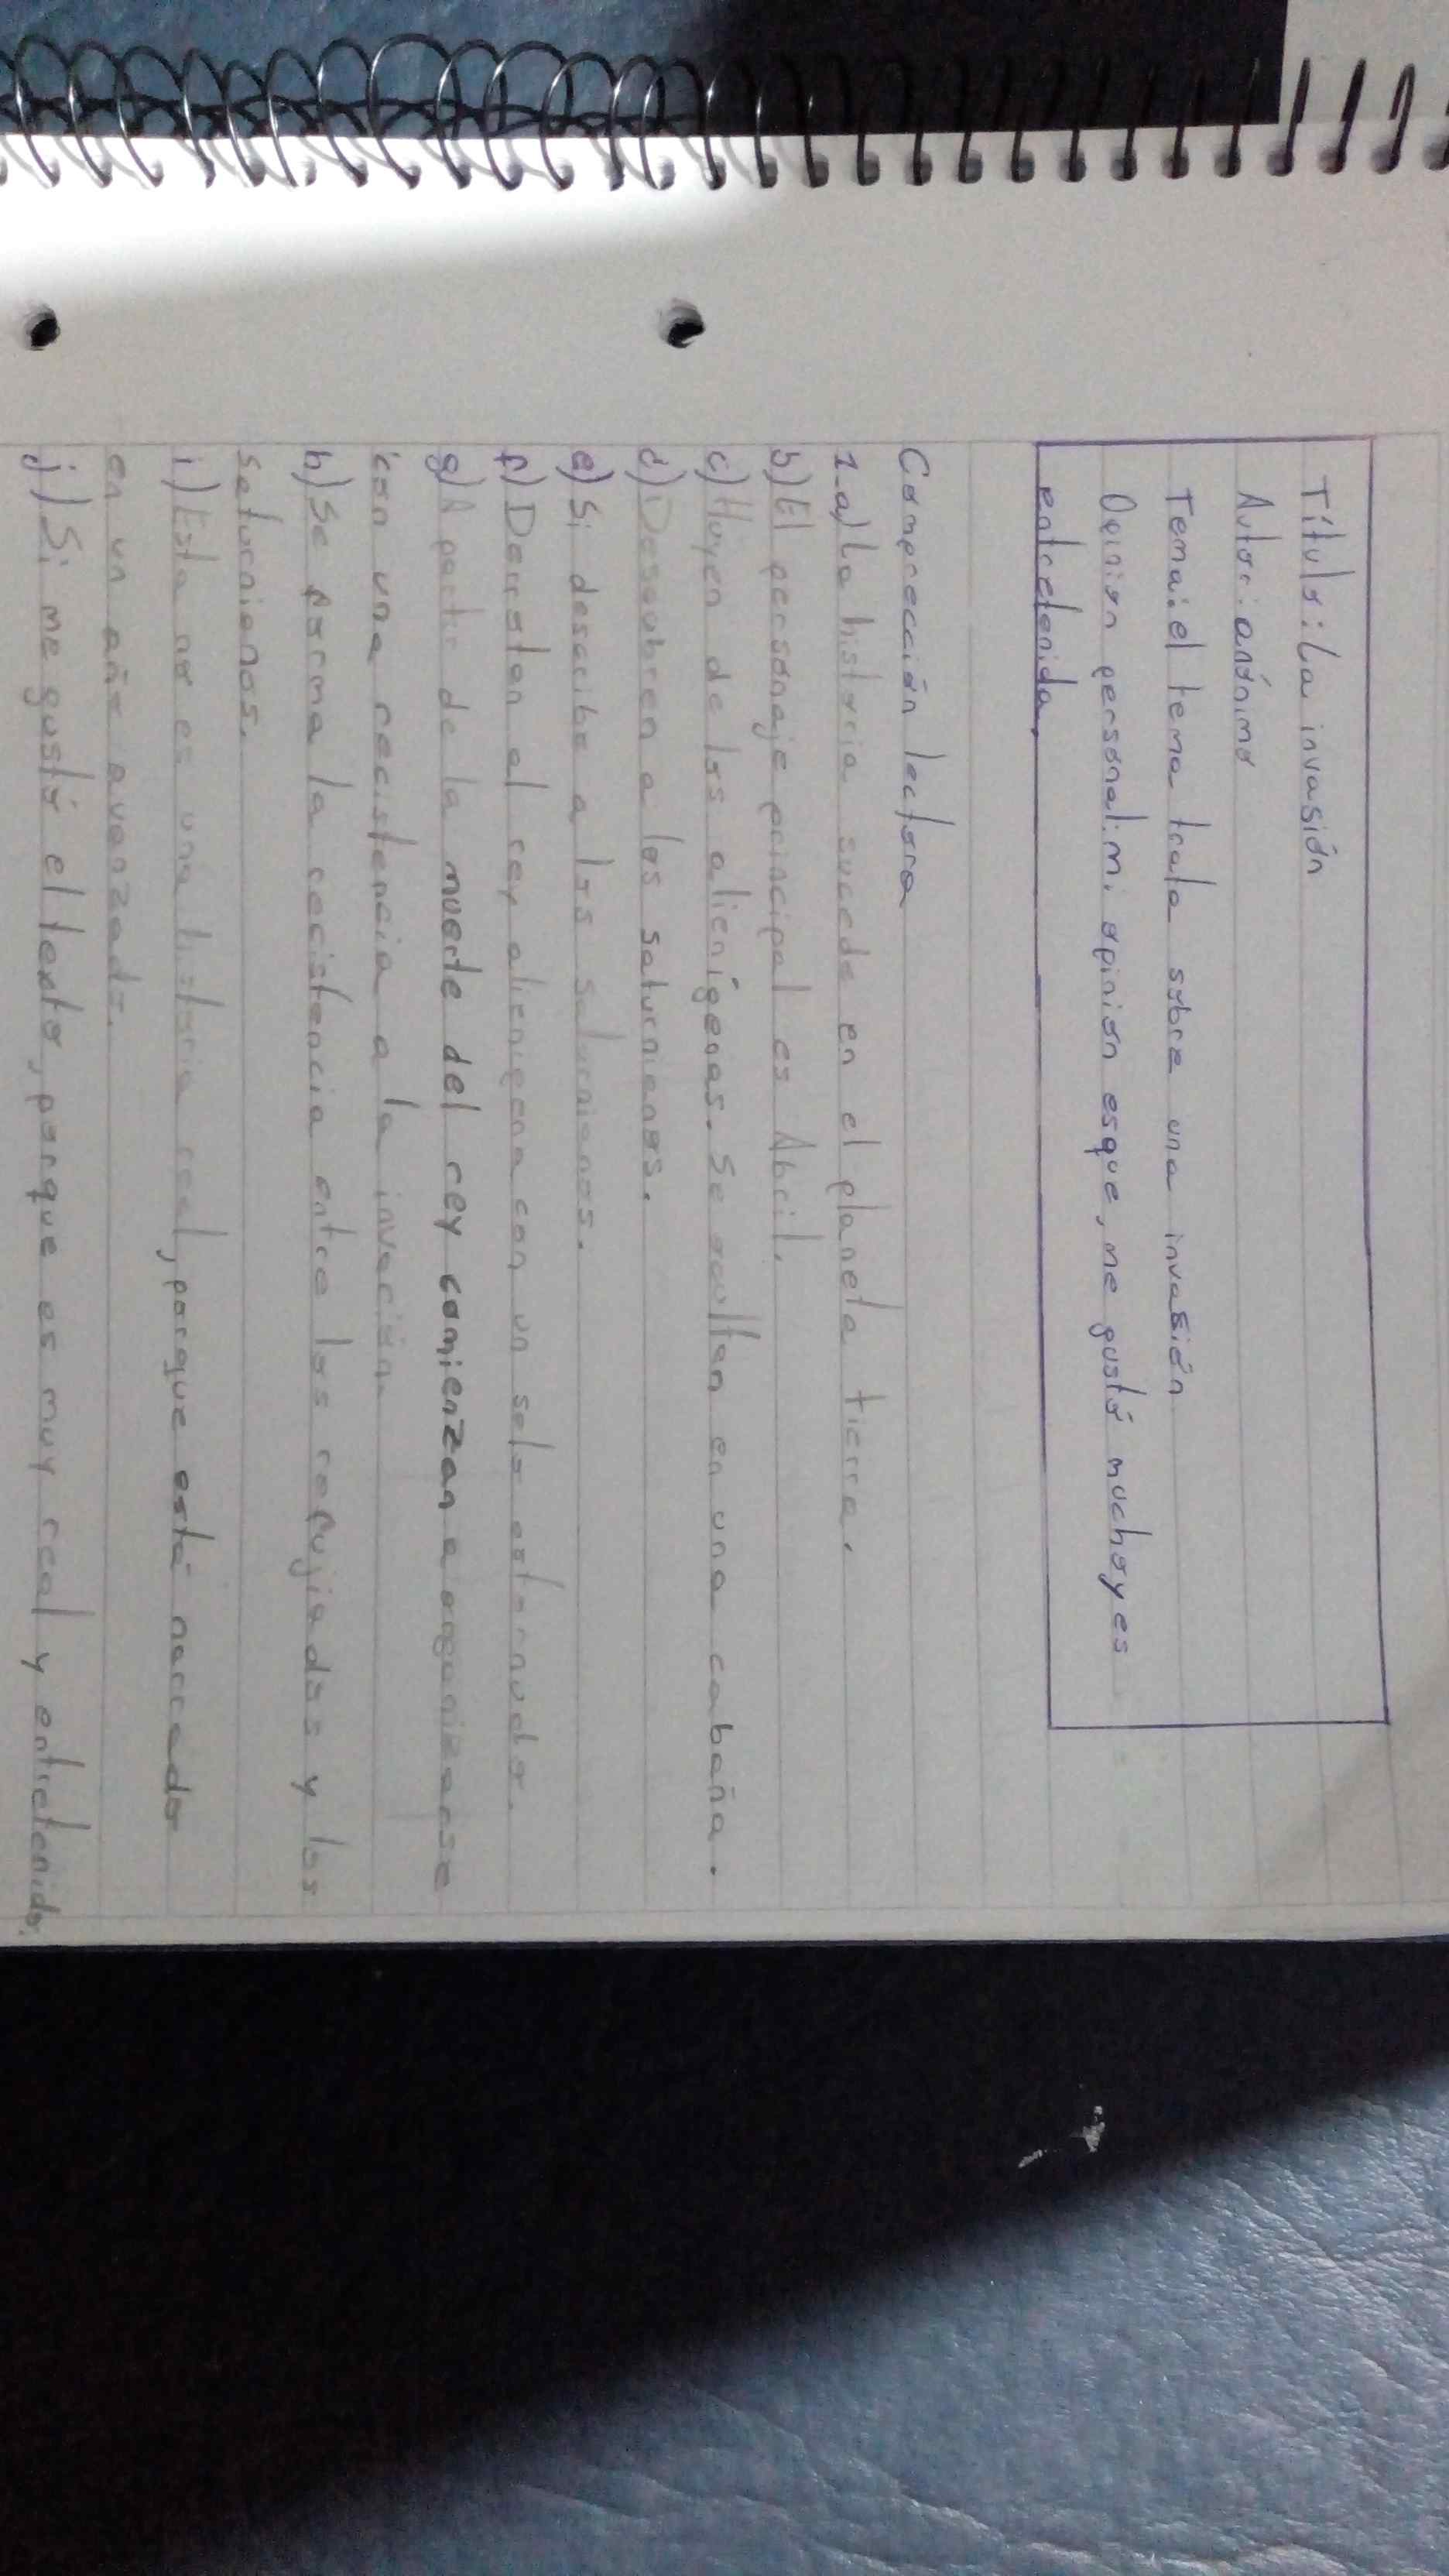 Título: La invasión
Autor: anónimo
Tema: el tema trata sobre una invasión
Opinion personal: mi opinión esque, me gustó mucho y es
entretenida
Comprección lectora
1-a) La historia sucede en el planeta tierra.
b) El personaje principal es Abril.
c) Huyen de los alienígenas. Se ocultan en una cabaña.
d) Descubren a los saturnianos.
e) Si describe a los saturnianos.
f) Derrotan al rey alienigena con un solo estornudo.
g) A partir de la muerte del rey comienzan a organizarse
con una recistencia a la invación.
h) Se forma la recistencia entre los refujiados y los
saturnianos.
i) Esta no es una historia real, porque está narrado
en un año avanzado.
j) Si me gustó el texto, porque es muy real y entretenido.